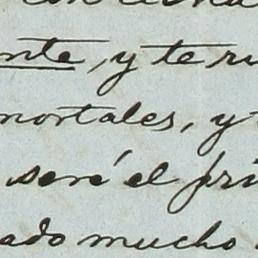 nte, y te ru
mortales, y
seré el pri
ado mucho